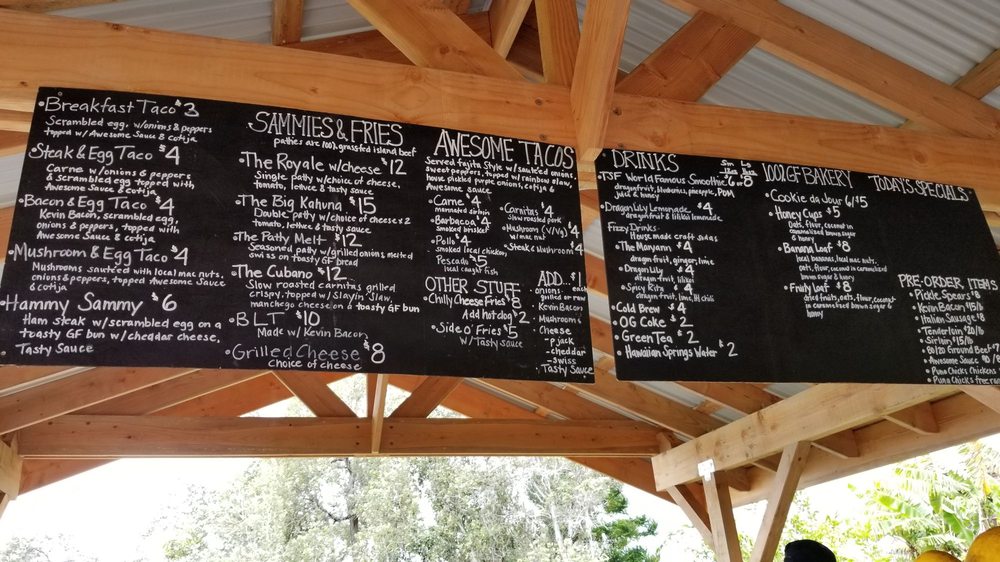 Breakfast Taco $3
Scrambled egg, w/onions & peppers
topped w/Awesome Sauce & cotija
Steak & Egg Taco $4
Carne w/onions & peppers
& scrambled egg topped with
Awesome Sauce & cotija
Bacon & Egg Taco $4
Kevin Bacon, scrambled egg,
onions & peppers, topped with
Awesome Sauce & cotija
Mushroom & Egg Taco $4
Mushrooms sauteed with local mac nuts,
onions & peppers, topped Awesome Sauce
& cotija
Hammy Sammy $6
Ham steak w/scrambled egg on a
toasty GF bun w/cheddar cheese,
Tasty Sauce
SAMMIES & FRIES
patties are 100% grassfed island beef
The Royale w/cheese $12
Single patty w/choice of cheese,
tomato, lettuce & tasty sauce
The Big Kahuna $15
Double patty w/choice of cheese x2
tomato, lettuce & tasty sauce
The Patty Melt $12
Seasoned patty w/grilled onions, melted
swiss on toasty GF bread
The Cubano $12
Slow roasted carnitas grilled
crispy, topped w/Slayin' Slaw,
manchego cheese on a toasty GF bun
BLT $10
Made w/Kevin Bacon
Grilled Cheese $8
choice of cheese
AWESOME TACOS
Served fajita Style w/sauteed onions,
sweet peppers, topped w/rainbow slaw,
house pickled purple onions, cotija &
Awesome sauce
Carne $4
marinated sirloin
Barbacoa $4
smoked brisket
Pollo $4
smoked local chicken
Pescado $5
local caught fish
Carnitas $4
Slow roasted pork
Mushroom (V/Vg) $4
w/mac nut
Steak & Mushroom $4
OTHER STUFF
Chilly Cheese Fries $8
Add hot dog $2
Side O' Fries $5
w/Tasty sauce
ADD... $1
onions
grilled or raw
Kevin Bacon
Mushrooms
Cheese
-p jack
-cheddar
-swiss
Tasty Sauce
DRINKS
Sm Lg
12oz 16oz
TSF World Famous Smoothie $6 $8
dragonfruit, blueberries, pineapple, POM
juice & honey
Dragon Lily Lemonade $4
dragonfruit & lilikoi lemonade
Fizzy Drinks
House made craft sodas
The Maryann $4
dragonfruit, ginger, lime
Dragon Lily $4
dragon fruit, lilikoi
Spicy Rita $4
dragon fruit, lime, HI chili
Cold Brew $4
OG Coke $2
Green Tea $2
Hawaiian Springs Water $2
100% GF BAKERY
Cookie du Jour 6/$15
Honey Cups $5
Oats, flour, coconut in
caramelized brown sugar
& honey
Banana Loaf $8
local bananas, local mac nuts,
oats, flour, coconut in caramelized
brown sugar & honey
Fruity Loaf $8
dried fruits, oats, flour, coconut
in caramelized brown sugar &
honey
TODAY'S SPECIALS
PRE-ORDER ITEMS
Pickle Spears $8
Kevin Bacon $15/lb
Italian Sausage $8
Tenderloin $20/lb
Sirloin $15/lb
80/20 Ground Beef $7
Awesome Sauce
Puna Chicks Chickens
Puna Chicks free ra